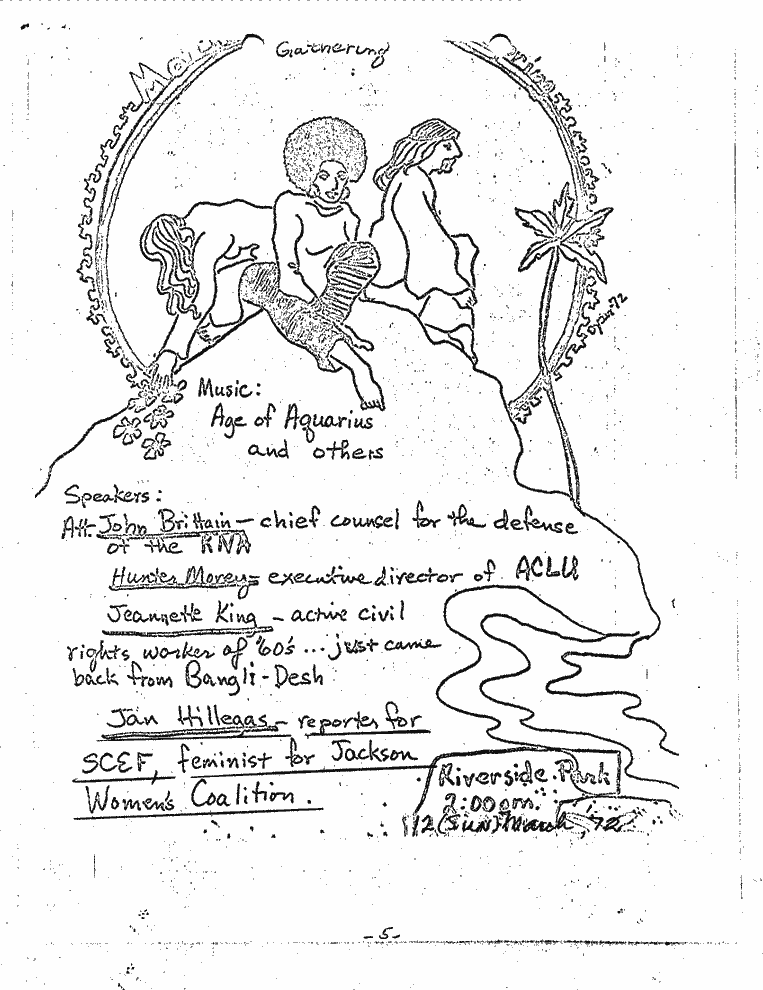 Gathering
Music:
Age of Aquarius
and others
Speakers:
Att. John Brittain - chief counsel for the defense
of the RNA
Hunter Morey - executive director of ACLU
Jeannette King - active civil
rights worker of '60's ... just came
back from Bangli-Desh
Jan Hillegas - reporter for
SCEF, feminist for Jackson
Women's Coalition.
Riverside Park
2:00 pm.
12 (SUN) March '72
- 5 -